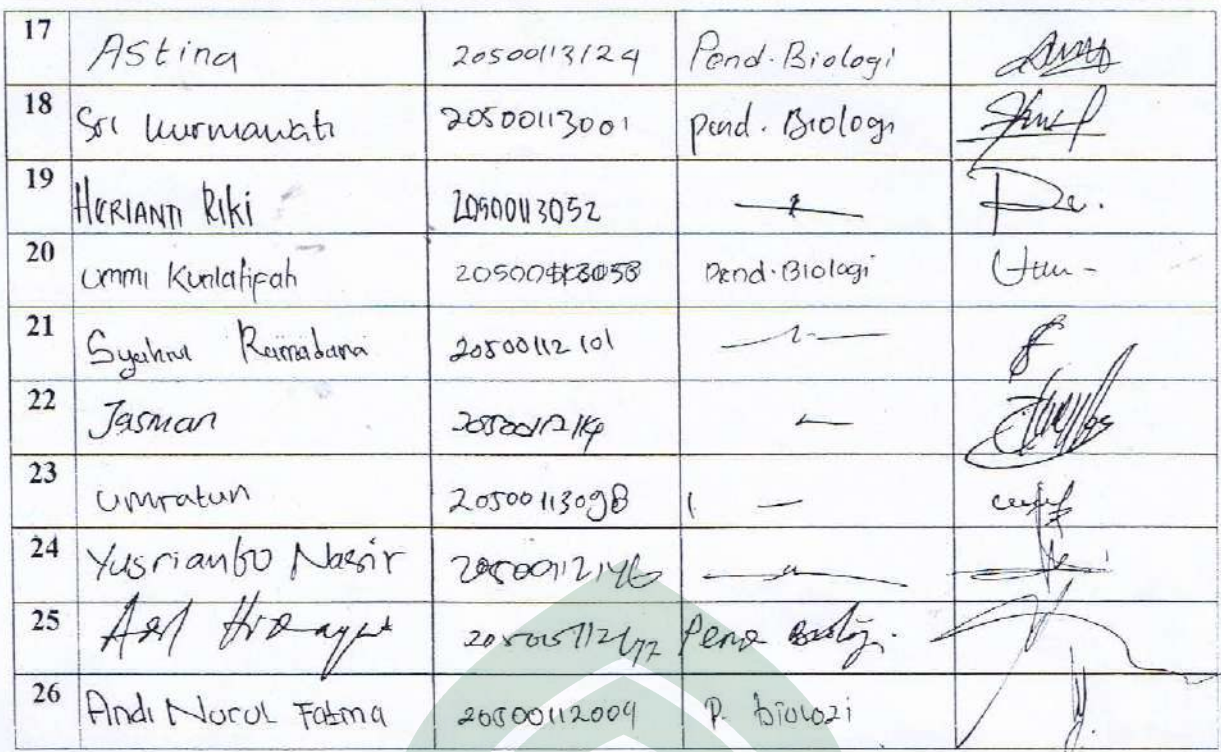 17 Astina 20500113124 Pend. Biologi
18 Sri Kurmawati 20500113001 Pend. Biologi
19 HERIANTI RIKI 20500113052
20 Ummi Kurlatifah Pend. Biologi
21 Syahrul Ramadana 20500112101
22 Jasman
23 Umratun 20500113098
24 Yusrianto Nasir 20500112146
25 Pend Biologi.
26 Andi Nurul Fatma 20500112009 P. biologi